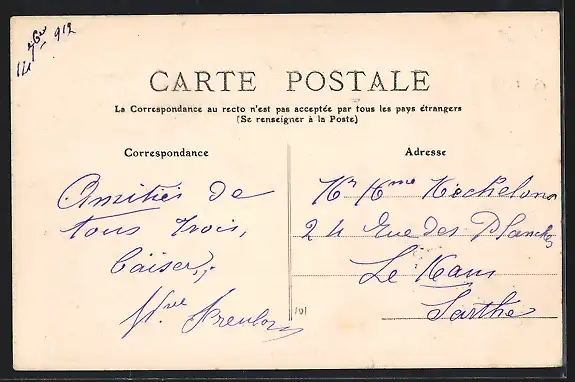 14 7bre 912
CARTE POSTALE
La Correspondance au recto n'est pas acceptée par tous les pays étrangers
(Se renseigner à la Poste)
Correspondance
Adresse
Amitiés de
tous trois,
baisers,
Mr Mme
24 Rue des Planches
Le Mans
Sarthe
101